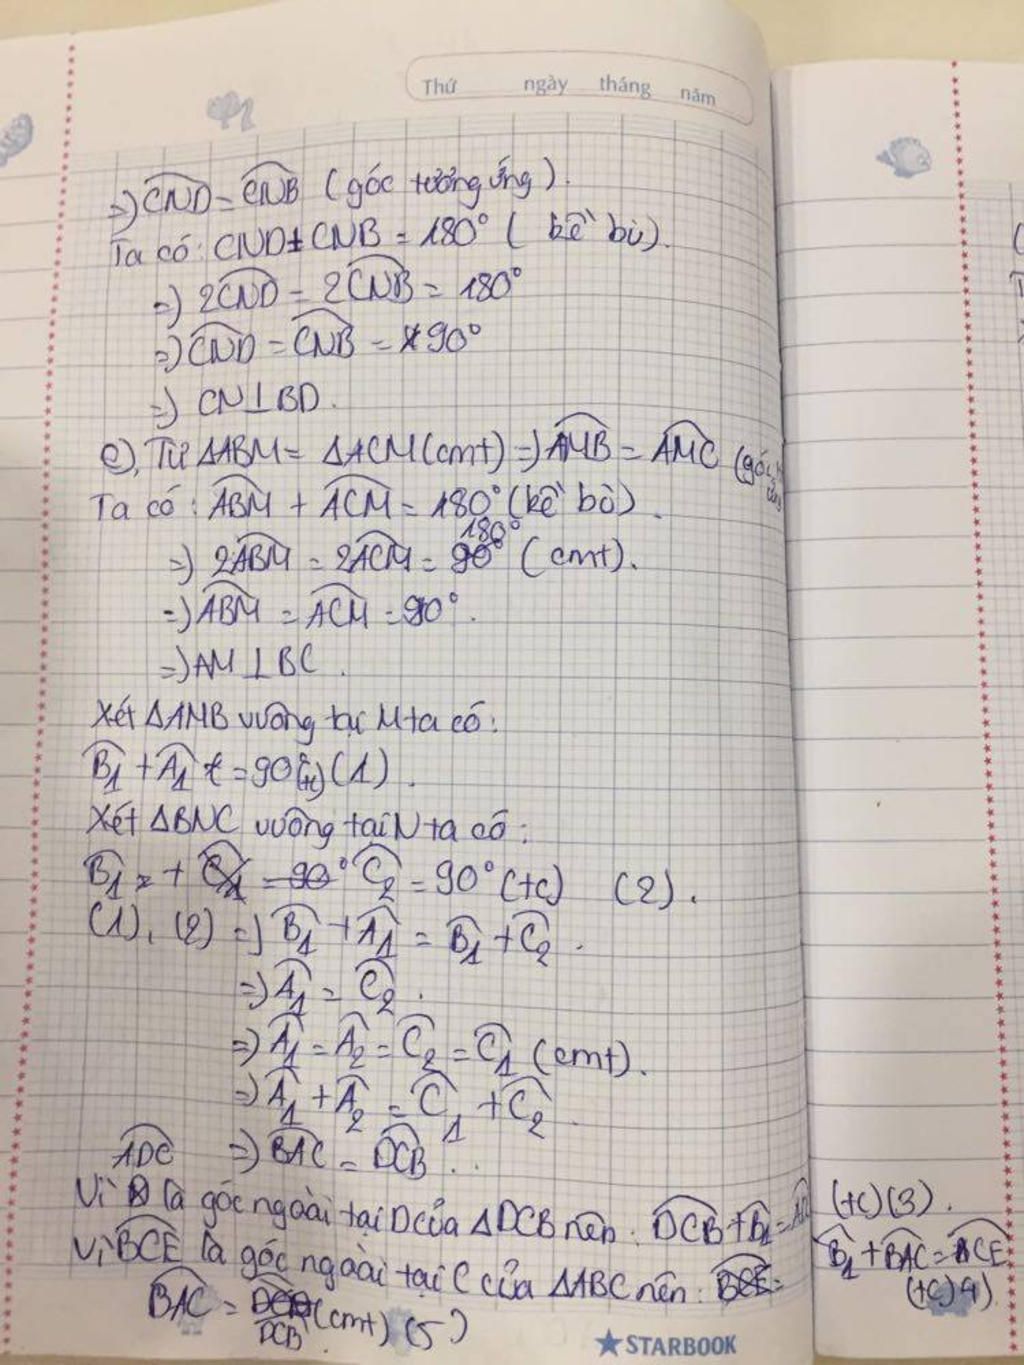 Thứ ngày tháng năm
=) CND = CNB (góc tương ứng).
Ta có: CND + CNB = 180° ( kề bù).
=) 2CND = 2CNB = 180°
=) CND = CNB = 90°
=) CN⊥BD.
c), Từ ΔABM = ΔACM (cmt) =) AMB = AMC (góc
Ta có: ABM + ACM = 180° (kề bù).
=) 2ABM = 2ACM = 180° (cmt).
=) ABM = ACM = 90°.
=) AM⊥BC.
Xét ΔAMB vuông tại M ta có:
B1 + A1 = 90 (tc) (1).
Xét ΔBNC vuông tại N ta có:
B1 + C2 = 90° (tc) (2).
(1), (2) =) B1 + A1 = B1 + C2.
=) A1 = C2.
=) A1 = A2 = C2 = C1 (cmt).
=) A1 + A2 = C1 + C2.
ADC =) BAC = DCB..
Vì là góc ngoài tại D của ΔDCB nên: DCB + B1 = AD (tc) (3).
Vì BCE là góc ngoài tại C của ΔABC nên: B1 + BAC = BCE
(tc) 4)
BAC = DCB (cmt) (5)
STARBOOK